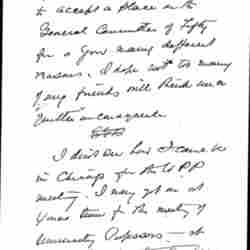 to accept a place on the
General Committee of Fifty
for a good many different
reasons. I hope not to many
of my friends will think me a
quitter in consequence
I don't see how I can be
in Chicago for the P P
meeting. I may get on at
time for the meeting of
University Professors — at